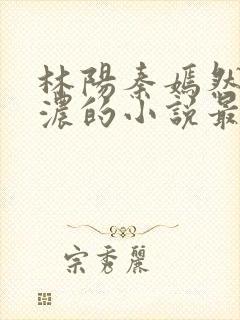 林陽秦嫣然
濃的小說最
宗秀麗